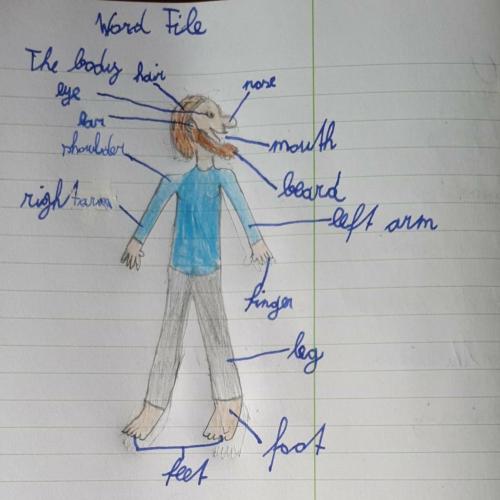 Word File
The body
hair
nose
eye
ear
shoulder
mouth
beard
right arm
left arm
finger
leg
foot
feet